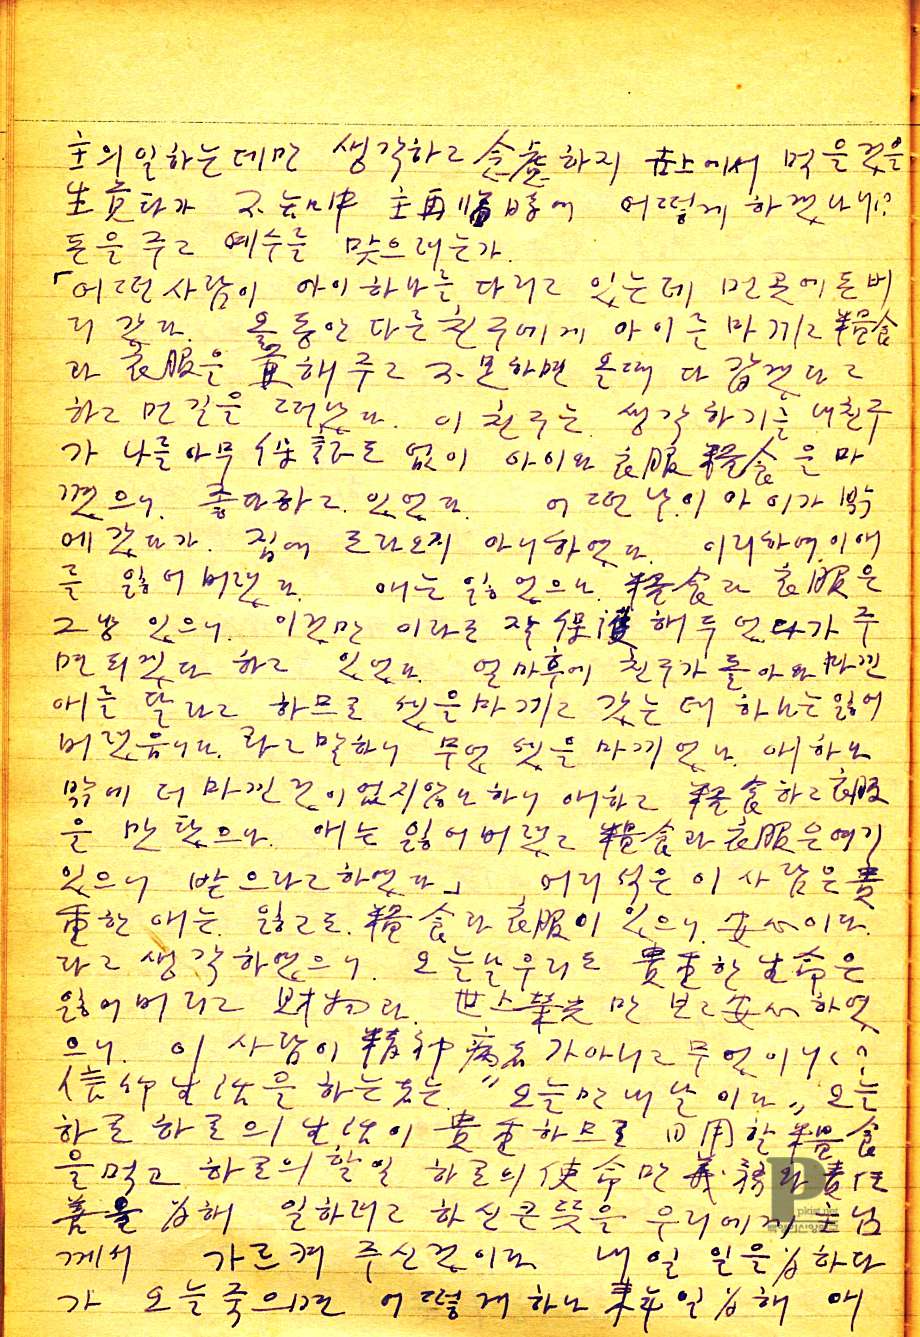 主의 일하는데만 생각하고 念慮하지 世上에서 먹을것을
生覓타가 不知中 主再臨時에 어떻게 하겠나냐?
돈을 주고 예수를 맞으려는가.
「어떤사람이 아이하나를 다리고 있는데 먼곳에 돈버
리 갔다. 올동안 다른친구에게 아이를 마끼고 糧食
과 衣服을 買해 주고 不足하면 올때 다 갑겠다고
하고 먼길을 떠났다. 이 친구는 생각하기를 내친구
가 나를 아무 保證도 없이 아이와 衣服 糧食을 마
꼈으니. 좋다하고 있었다. 어떤날이 아이가 밖
에 갔다가. 집에 도라오지 아니하였다. 이리하여 이애
를 잃어버렸다. 애는 잃었으나. 糧食과 衣服은
그냥 있으니. 이것만 이라도 잘 保護해 두었다가 주
면 되겠다 하고 있었다. 얼마후에 친구가 돌아와 마낀
애를 달라고 하므로 셋을 마끼고 갔는데 하나는 잃어
버렸읍니다. 라고 말하니 무엇 셋을 마끼었나. 애하나
밖에 더 마낀것이 없지않나 하니 애하고 糧食하고 衣服
을 만탔으나. 애는 잃어버렸고 糧食과 衣服은 여기
있으니 받으라고 하였다」 어리석은 이 사람은 貴
重한 애는. 잃고도. 糧食과 衣服이 있으니. 安心이다.
라고 생각하였으니. 오늘날 우리도 貴重한 生命은
잃어버리고 財物과. 世上榮光만 보고 安心하였
으니. 이 사람이 精神病者가 아니고 무엇이냐?
信仰生活을 하는 者는. "오늘만 내 날이다" 오늘
하로 하로의 生活이 貴重하므로 日用할 糧食
을 먹고 하로의 할일 하로의 使命만 義務와 責任
善을 爲해 일하려고 하신 큰 뜻을 우리에게 主님
께서 가르켜 주신것이다. 내일 일을 爲하다
가 오늘 죽으면 어떻게 하나 來年일 爲해 애
P
pkist.net